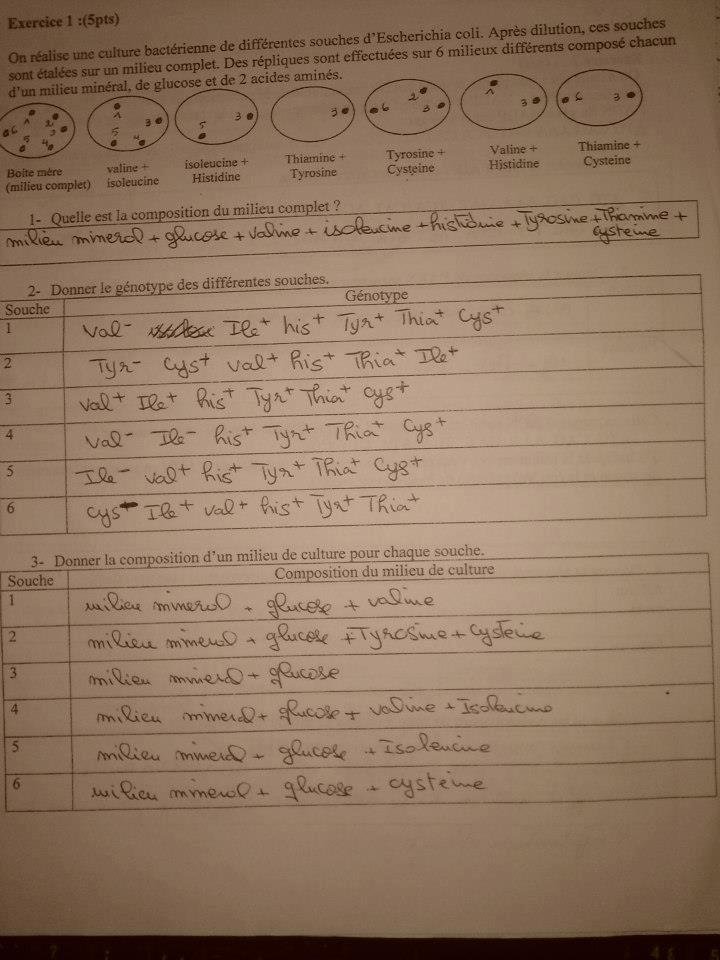 Exercice 1 :(5pts)
On réalise une culture bactérienne de différentes souches d'Escherichia coli. Après dilution, ces souches
sont étalées sur un milieu complet. Des répliques sont effectuées sur 6 milieux différents composé chacun
d'un milieu minéral, de glucose et de 2 acides aminés.
6 1 2 3 5 4
1 3 5 4
3 5
3
6 2 3
1 3
6 3
Boite mère
(milieu complet)
valine +
isoleucine
isoleucine +
Histidine
Thiamine +
Tyrosine
Tyrosine +
Cysteine
Valine +
Histidine
Thiamine +
Cysteine
1- Quelle est la composition du milieu complet ?
milieu minerol + glucose + valine + isoleucine + histidine + Tyrosine + Thiamine +
cysteine
2- Donner le génotype des différentes souches.
Souche Génotype
1 Val- Ile+ his+ Tyr+ Thia+ Cys+
2 Tyr- Cys+ val+ his+ Thia+ Ile+
3 val+ Ile+ his+ Tyr+ Thia+ cys+
4 val- Ile- his+ Tyr+ Thia+ Cys+
5 Ile- val+ his+ Tyr+ Thia+ Cys+
6 cys- Ile+ val+ his+ Tyr+ Thia+
3- Donner la composition d'un milieu de culture pour chaque souche.
Souche Composition du milieu de culture
1 milieu minerol + glucose + valine
2 milieu minerol + glucose + Tyrosine + Cysteine
3 milieu minerol + glucose
4 milieu minerol + glucose + valine + Isoleucine
5 milieu minerol + glucose + Isoleucine
6 milieu minerol + glucose + cysteine